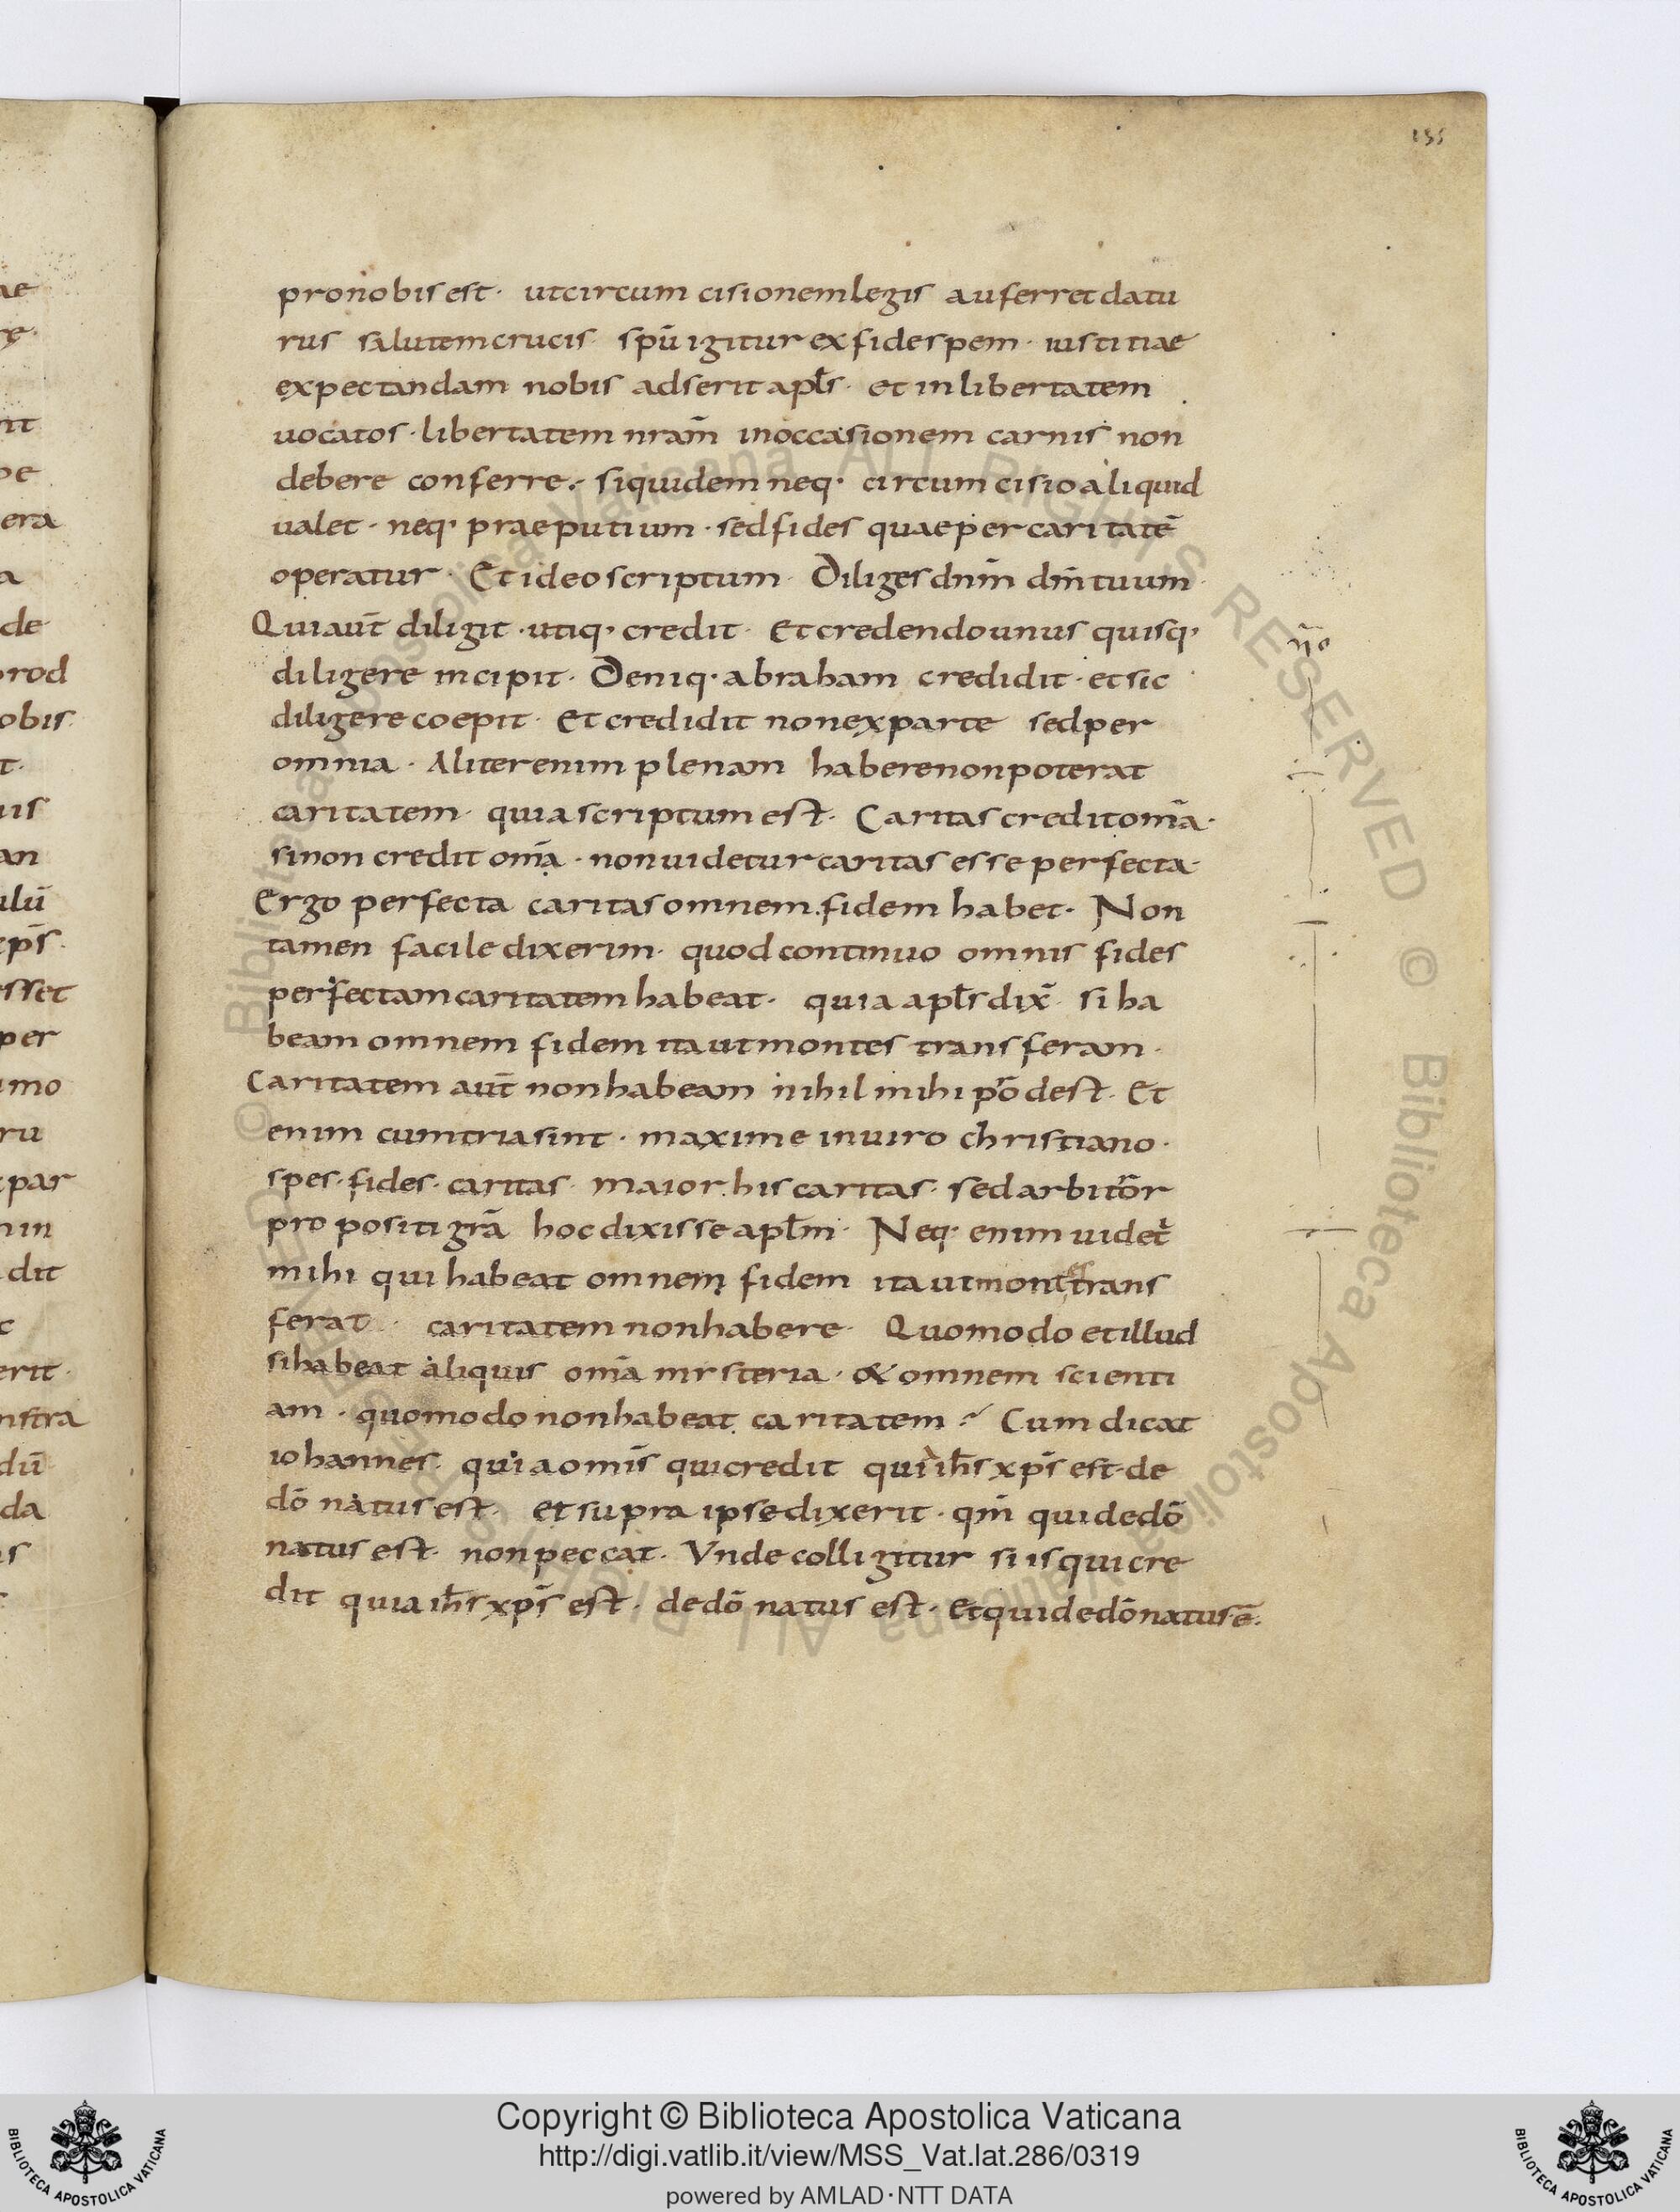 155
pro nobis est · ut circumcisionem legis auferret datu
rus salutem crucis · spū igitur ex fide spem · iustitiae
expectandam nobis adserit apl̄s · et in libertatem
uocatos · libertatem nr̄am in occasionem carnis non
debere conferre · siquidem neq· circumcisio aliquid
ualet · neq· praeputium · sed fides quae per caritatē
operatur · Et ideo scriptum · Diliges dnm̄ dm̄ tuum ·
Qui aut̄ diligit · utiq· credit · Et credendo unus quisq·
diligere incipit · Deniq· abraham credidit · et sic
diligere coepit · Et credidit non ex parte sed per
omnia · Aliter enim plenam habere non poterat
caritatem · quia scriptum est · Caritas credit om̄a ·
si non credit om̄a · non uidetur caritas esse perfecta ·
Ergo perfecta caritas omnem fidem habet · Non
tamen facile dixerim · quod continuo omnis fides
perfectam caritatem habeat · quia apl̄s dix̄ · si ha
beam omnem fidem ita ut montes transferam ·
Caritatem aut̄ non habeam nihil mihi p̄odest · Et
enim cum tria sint · maxime in uiro christiano ·
spes · fides · caritas · maior his caritas · sed arbitōr
propositi grā hoc dixisse apl̄m · Neq· enim uidet̄
mihi qui habeat omnem fidem ita ut montes trans
ferat · caritatem non habere · Quomodo et illud
si habeat aliquis om̄a misteria · & omnem scienti
am · quomodo non habeat caritatem ? Cum dicat
iohannes · quia om̄is qui credit quia ih̄s xp̄s est · de
dō natus est · et supra ipse dixerit · qm̄ qui de dō
natus est · non peccat · Vnde colligitur si is qui cre
dit quia ih̄s xp̄s est · de dō natus est · Et qui de dō natus ē ·
ae
nt
era
a
de
prod
obis
t·
uis
an
ulū
ep̄s ·
esset
per
imo
ru
par
nin
dit
c
erit ·
nstra
dū
da
Copyright © Biblioteca Apostolica Vaticana
http://digi.vatlib.it/view/MSS_Vat.lat.286/0319
powered by AMLAD·NTT DATA
BIBLIOTECA APOSTOLICA VATICANA
BIBLIOTECA APOSTOLICA VATICANA